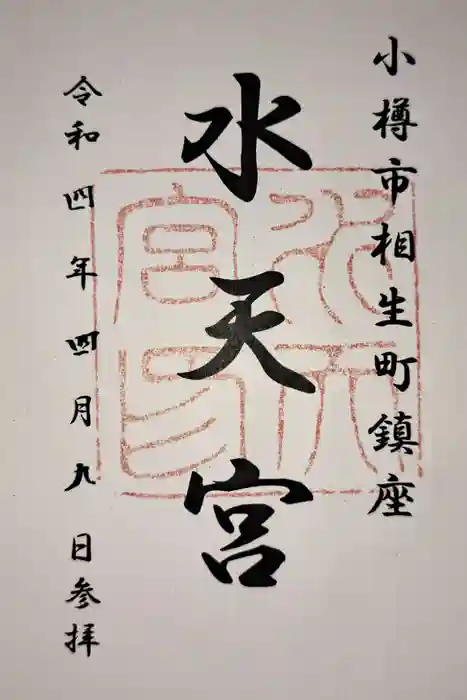 小樽市相生町鎮座
水天宮
令和四年四月九日参拝
水天宮印